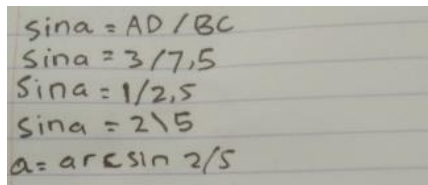 sina = AD / BC
sina = 3/7,5
sina = 1/2,5
sina = 2\5
a = arcsin 2/5